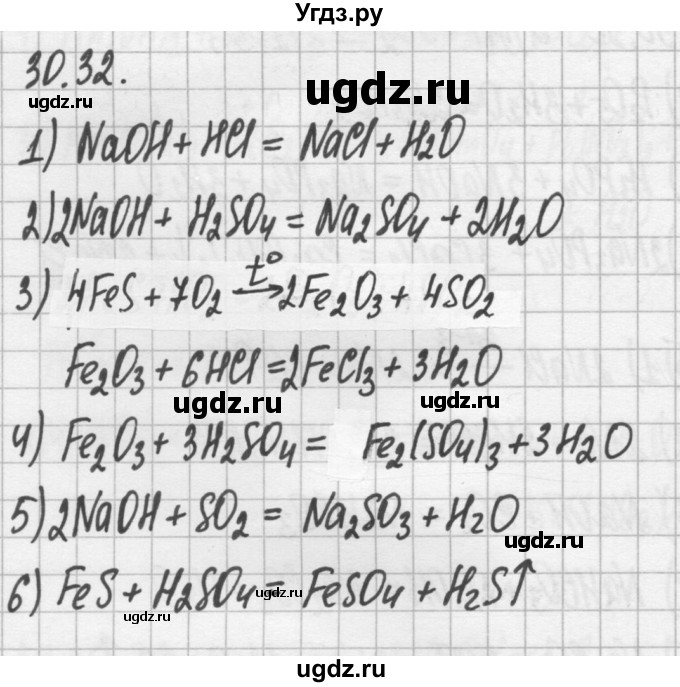 Угдз.ру
30.32.
ugdz.ru
ugdz.ru
1) NaOH + HCl = NaCl + H2O
2) 2NaOH + H2SO4 = Na2SO4 + 2H2O
3) 4FeS + 7O2 t°→ 2Fe2O3 + 4SO2
Fe2O3 + 6HCl = 2FeCl3 + 3H2O
ugdz.ru
ugdz.ru
4) Fe2O3 + 3H2SO4 = Fe2(SO4)3 + 3H2O
5) 2NaOH + SO2 = Na2SO3 + H2O
ugdz.ru
6) FeS + H2SO4 = FeSO4 + H2S↑
ugdz.ru
ugdz.ru
ugdz.ru